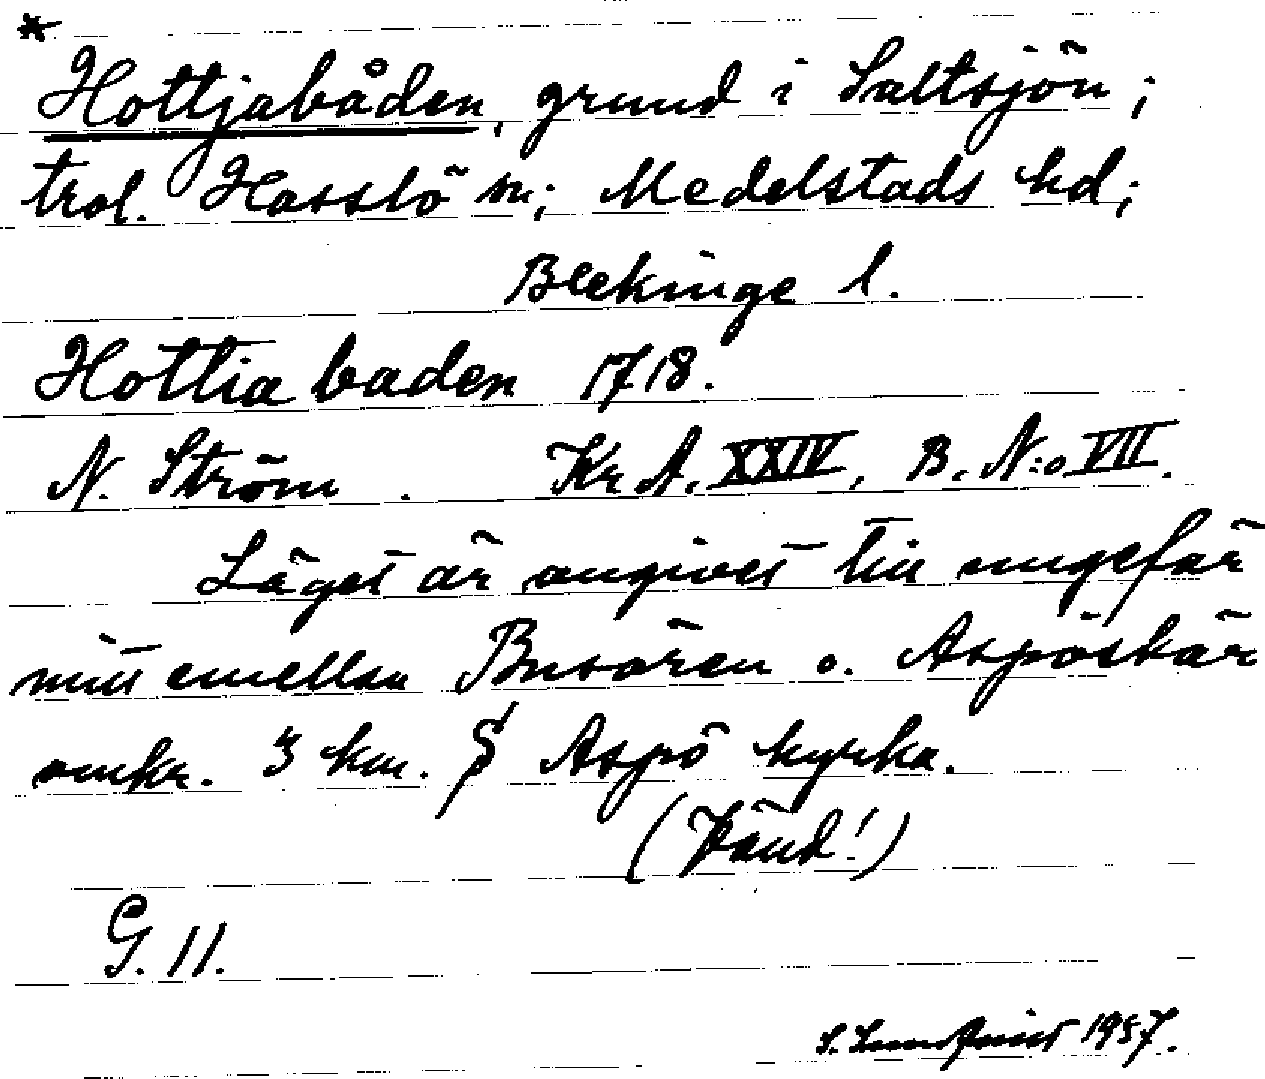 *
Hottjabåden, grund i Saltsjön;
trol. Hasslö sn; Medelstads hd;
Blekinge l.
Hottia baden 1718.
N. Ström. Kr. A. XXIV, B. N:o VII.
Läget är angivet till ungefär
mitt emellan Busören o. Aspöskär
omkr. 3 km. S Aspö kyrka.
(Vänd!)
G. 11.
S. 1957.